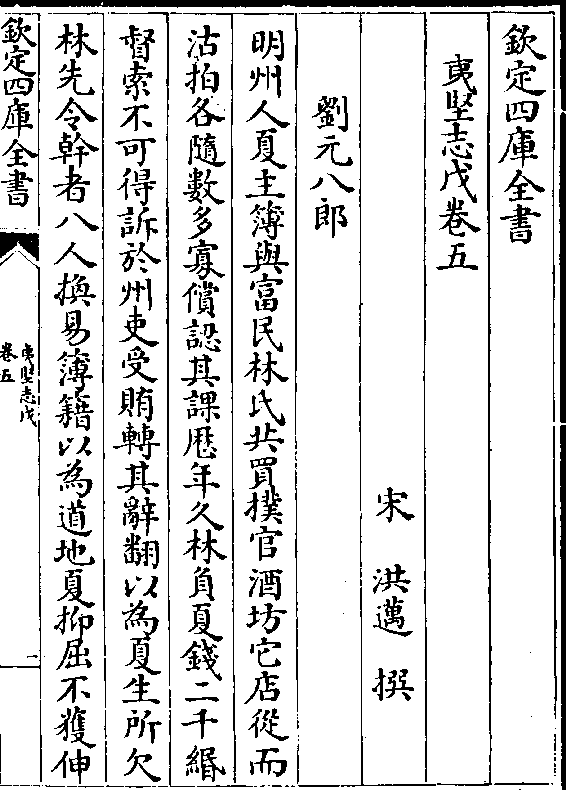 欽定四庫全書
夷堅志戊卷五
宋　洪邁　撰
劉元八郎
明州人夏主簿與富民林氏共買撲官酒坊它店從而
沽拍各隨數多寡償認其課歴年久林負夏錢二千緡
督索不可得訴於州吏受賄轉其辭翻以為夏生所欠
林先令幹者八人換易簿籍以為道地夏抑屈不獲伸
欽定四庫全書
夷堅志戊
卷五
一